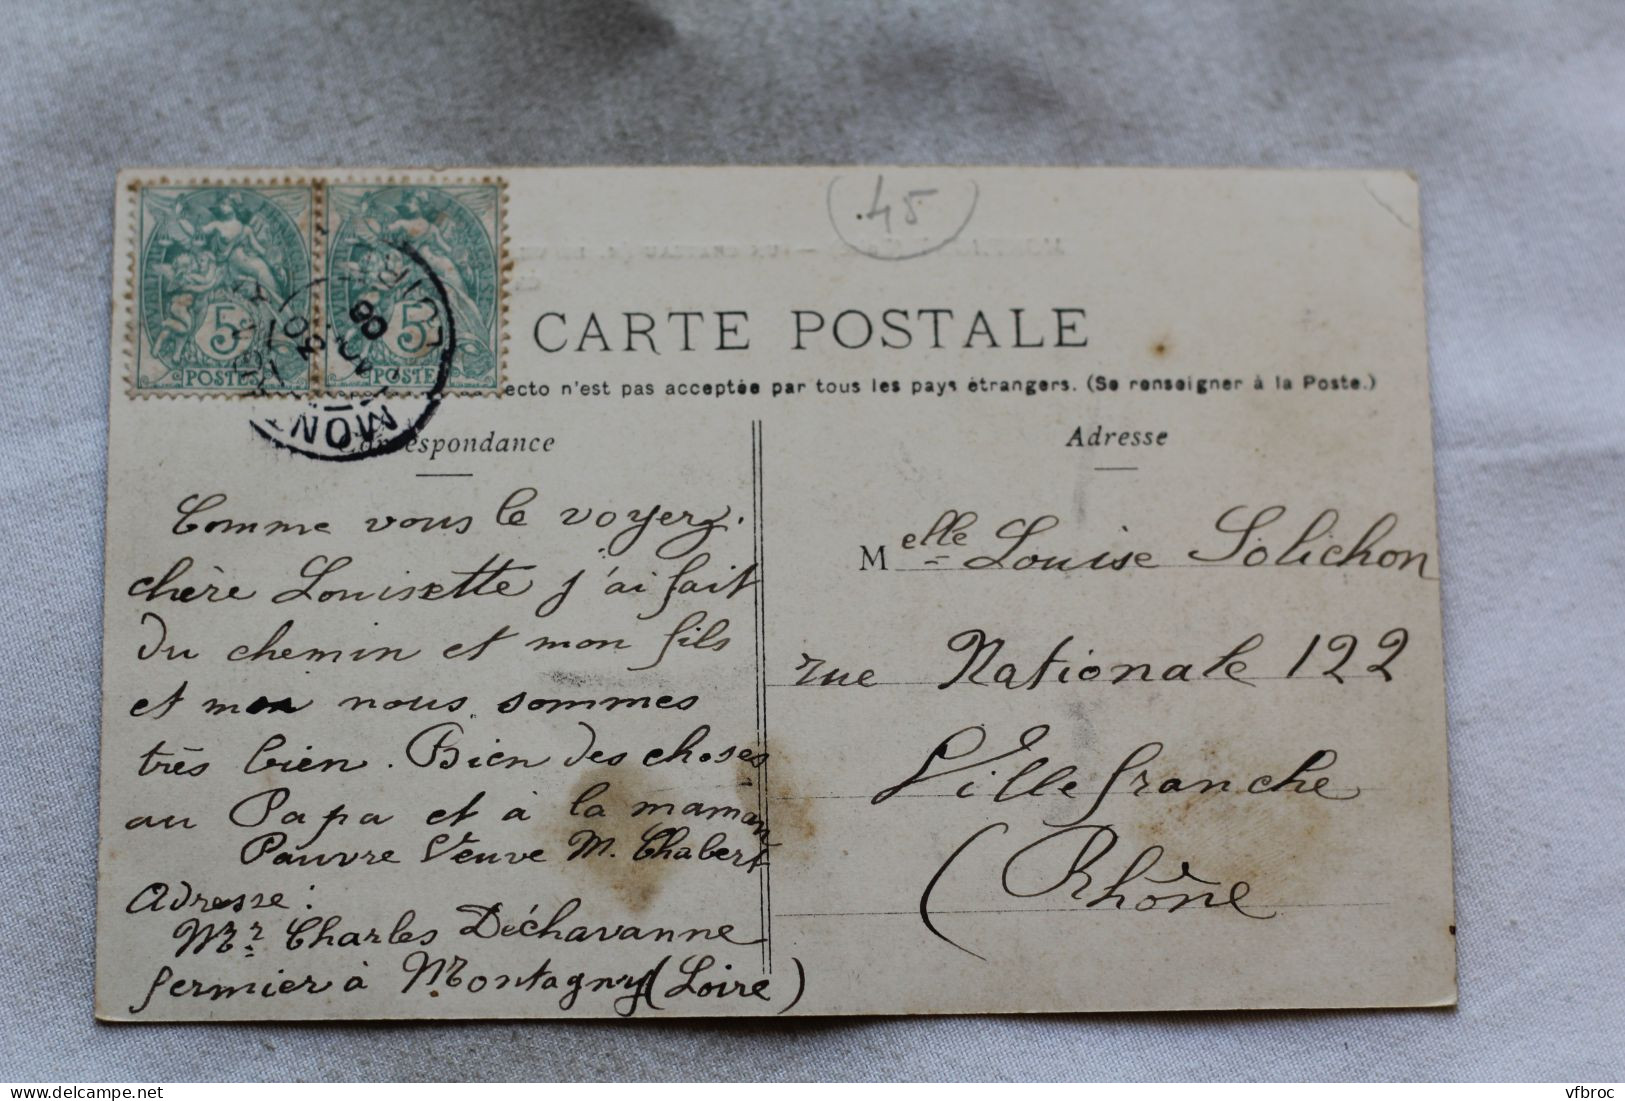 .45
5
POSTES
5
POSTES
LOIRE
CARTE POSTALE
ecto n'est pas acceptée par tous les pays étrangers. (Se renseigner à la Poste.)
Correspondance
Adresse
Comme vous le voyez.
chère Louisette j'ai fait
du chemin et mon fils
et moi nous sommes
très bien. Bien des choses
au Papa et à la maman
Pauvre Veuve M. Chabert
Adresse :
Mr Charles Déchavanne
fermier à Montagny (Loire)
Melle Louise Solichon
rue Nationale 122
Villefranche
(Rhône
vfbroc
delcampe.net